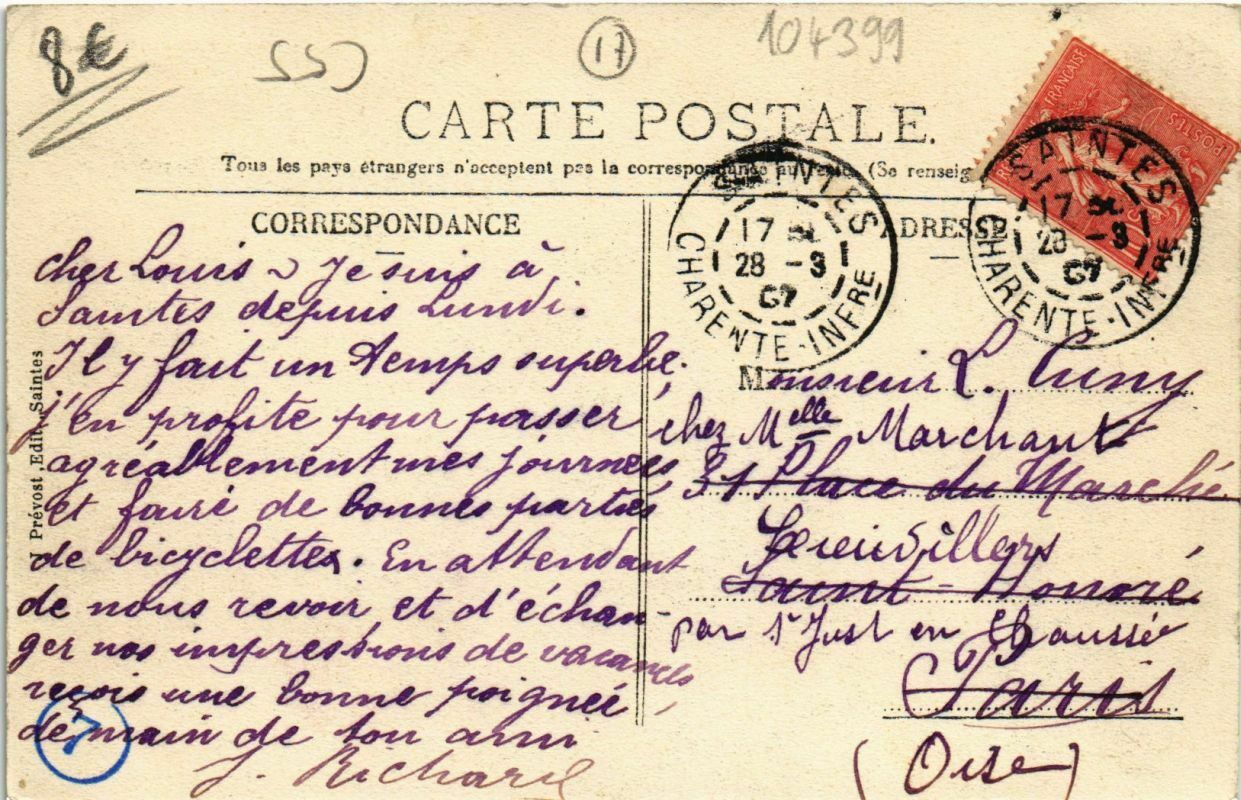 8€
SSJ
17
104399
CARTE POSTALE.
Tous les pays étrangers n'acceptent pas la correspondance au (Se renseig
CORRESPONDANCE
ADRESSE
FRANÇAISE
POSTES
SAINTES
17
28 - 3
07
CHARENTE-INFRE
SAINTES
17
28 - 3
07
CHARENTE-INFRE
cher Louis ~ Je suis à
Saintes depuis Lundi.
Il y fait un temps superbe.
j'en profite pour passer
agréablement mes journées
et faire de bonnes parties
de bicyclette. En attendant
de nous revoir et d'échan-
ger nos impressions de vacances
reçois une bonne poignée
de main de ton ami
J. Richard
7
J Prévost Edit. Saintes
Monsieur L. Cuny
chez Melle Marchant
31 Place du Marché
Lieuvillers
Saint-Honoré
par St Just en Chaussée
Paris
(Oise)